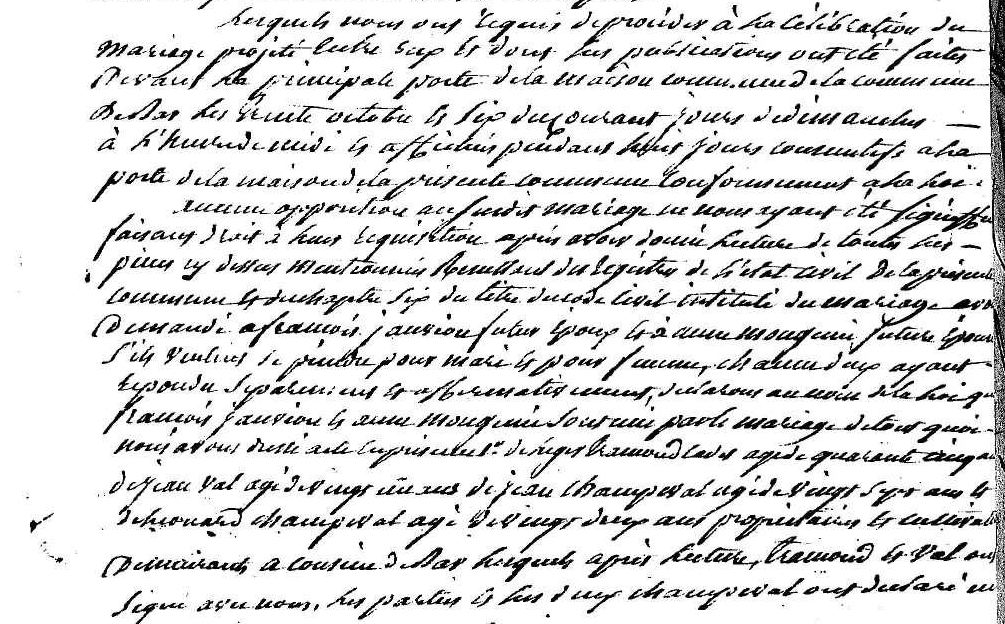 Lesquels nous ont requis de procéder à la célébration du
mariage projeté entre eux et dont les publications ont été faites
devant la principale porte de la maison commune de la commune
de Bar les trente octobre et six du courant jours de dimanches
à l'heure de midi et affichés pendant huit jours consecutifs a la
porte de la maison de la présente commune conformement a la loi.
aucune opposition au susdit mariage ne nous ayant été signifiée
faisant droit à leur requisition après avoir donné lecture de toutes les
pieces cy dessus mentionnées des régistres de l'état civil de la présente
commune et du chapitre six du titre du code civil intitulé du mariage avons
demandé a françois janvion futur époux et à anne mougeini future épouse
s'ils veulent se prendre pour mari et pour femme, chacun d'eux ayant
repondu séparément et affirmativement, declarons au nom de la loi que
françois janvion et anne mougeini sont unis par le mariage de tout quoi
nous avons dressé acte en présence de Tramond agé de quarante cinq ans
de jean val agé de vingt un ans de jean champeval agé de vingt sept ans et
de champeval agé de vingt deux ans propriétaires et cultivateurs
demeurants a de Bar lesquels après lecture, Tramond et val ont
signé avec nous, les parties et les deux champeval ont declaré ne